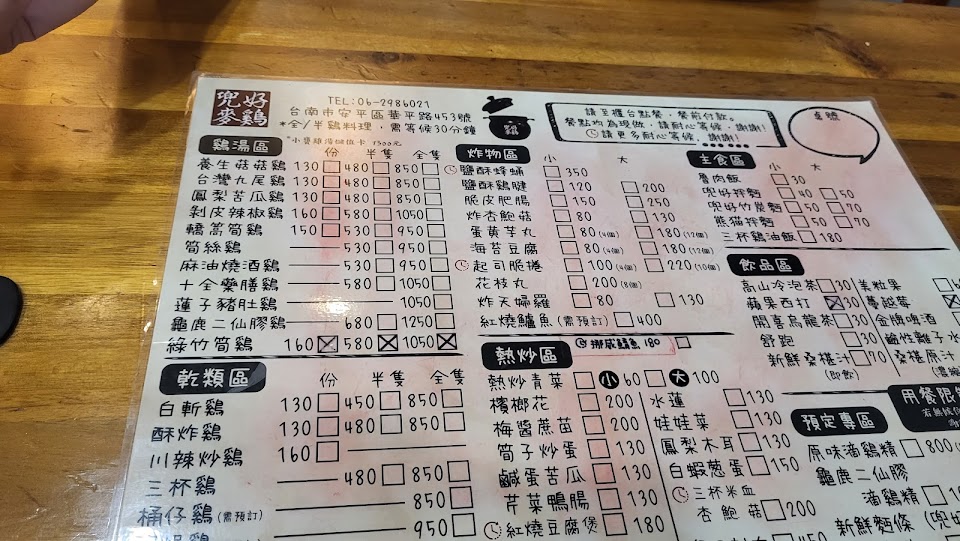 兜好
麥鷄
TEL:06-2986021
台南市安平區華平路453號
*全/半鷄料理,需等候30分鐘
請至櫃台點餐,餐前付款。
餐點均為現做,請耐心等候,謝謝!
請更多耐心等候,謝謝!
桌號
鷄湯區
份 半隻 全隻
養生菇菇鷄 130 480 850
台灣九尾鷄 130 480 850
鳳梨苦瓜鷄 130 480 850
剝皮辣椒鷄 160 580 1050
轎篙筍鷄 150 530 950
筍絲鷄 530 950
麻油燒酒鷄 530 950
十全藥膳鷄 580 1050
蓮子豬肚鷄 1050
龜鹿二仙膠鷄 680 1250
綠竹筍鷄 160 580 1050
乾類區
份 半隻 全隻
白斬鷄 130 450 850
酥炸鷄 130 480 850
川辣炒鷄 160
三杯鷄 480 850
桶仔鷄(需預訂) 850
950
炸物區
小 大
鹽酥蜂蛹 350
鹽酥鷄腱 120 200
脆皮肥腸 150 250
炸杏鮑菇 80 130
蛋黃芋丸 80(4個) 180(12個)
海苔豆腐 80(4個) 180(12個)
起司脆捲 100(4個) 220(10個)
花枝丸 200(8個)
炸天婦羅 80 130
紅燒鱸魚(需預訂) 400
挪威鯖魚 180
熱炒區
熱炒青菜 小 60 大 100
檳榔花 200
梅醬蔗苗 200
筍子炒蛋 130
鹹蛋苦瓜 130
芹菜鴨腸 130
紅燒豆腐煲 180
水蓮 130
娃娃菜 130
鳳梨木耳 130
白蝦蔥蛋 150
三杯米血
杏鮑菇 200
主食區
小 大
魯肉飯 30
兜好拌麵 40 50
兜好竹炭麵 50 70
熊貓拌麵 50 70
三杯鷄油飯 180
飲品區
高山冷泡茶 30
蘋果西打 30
開喜烏龍茶 30
舒跑 30
新鮮桑椹汁 70
(即飲)
美粒果
蔓越莓
金牌啤酒
桑椹原汁
用餐限
預定專區
原味滴鷄精 800
龜鹿二仙膠
滴鷄精
新鮮麵條